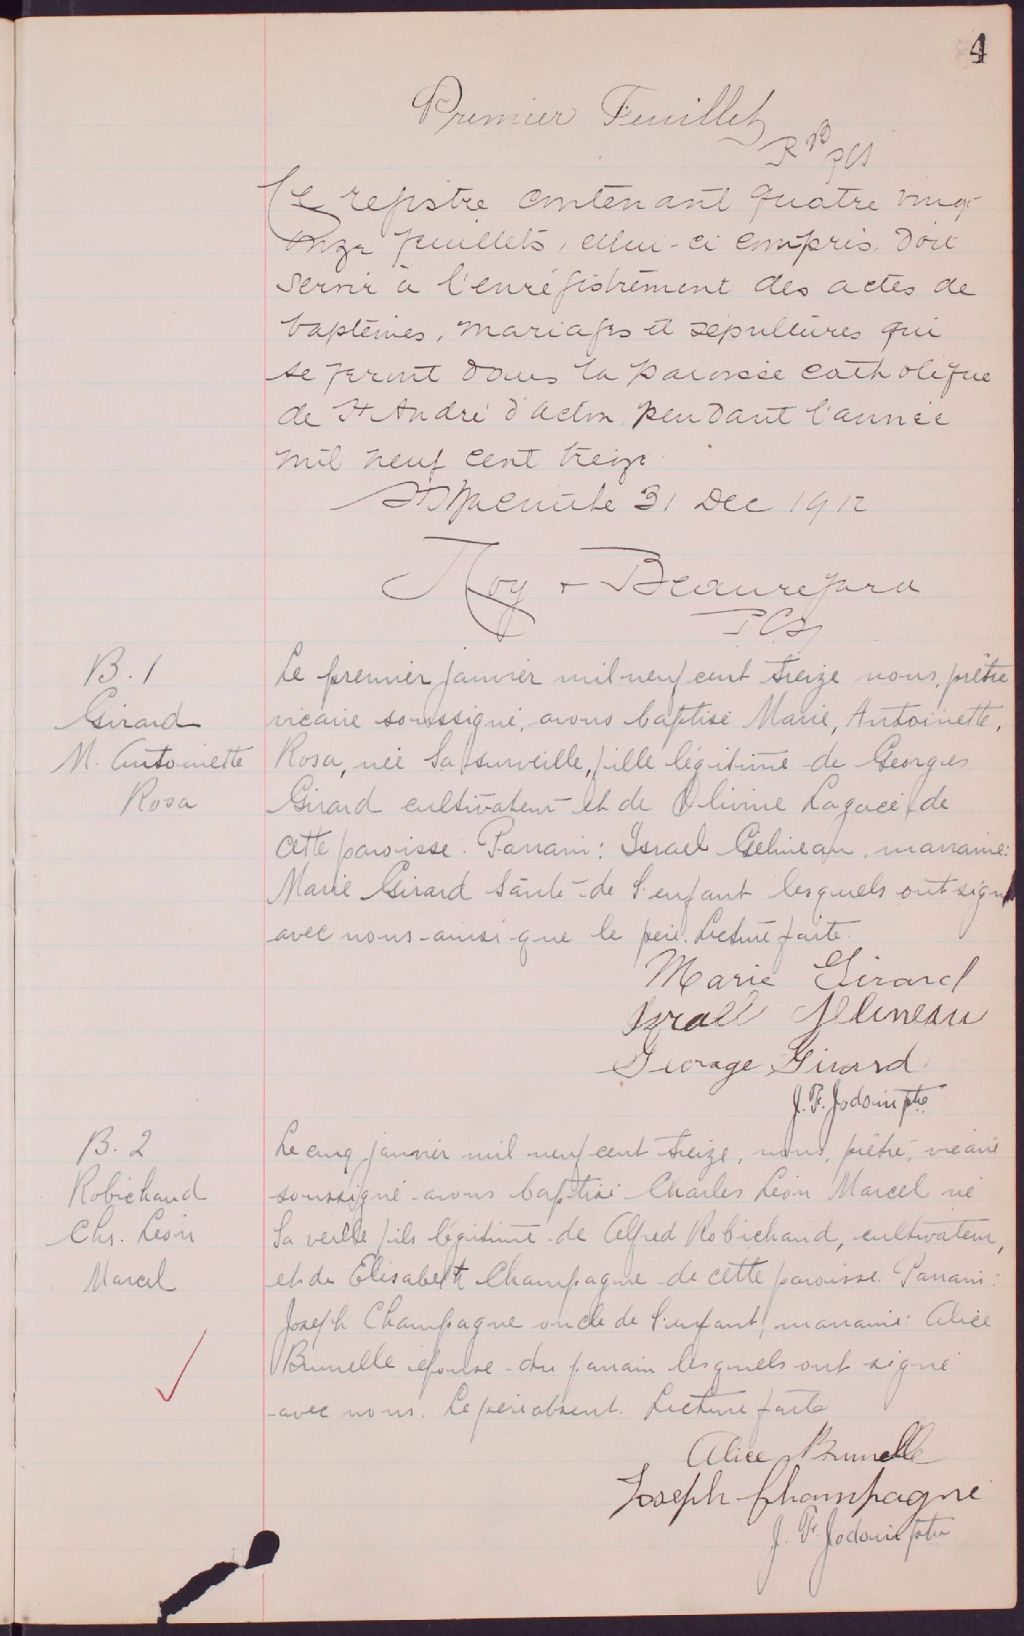 4
Premier Feuillet
R & B PCS
Ce registre contenant quatre vingt
onze feuillets, celui-ci compris, doit
servir à l'enrégistrement des actes de
baptêmes, mariages et sépultures qui
se feront dans la paroisse catholique
de St André d'Acton, pendant l'année
mil neuf cent treize.
St Hyacinthe 31 Dec 1912
Roy & Beauregard
PCS
B. 1
Girard
M. Antoinette
Rosa
Le premier janvier mil neuf cent treize nous, prêtre
vicaire soussigné, avons baptisé Marie, Antoinette,
Rosa, née la surveille, fille légitime de Georges
Girard cultivateur et de Olivine Lagacé de
cette paroisse. Parrain: Israel Gelineau, marraine:
Marie Girard tante de l'enfant lesquels ont signé
avec nous ainsi que le père. Lecture faite.
Marie Girard
Israel Jelineau
George Girard
J. F. Jodoin ptre
B. 2
Robichaud
Chs. Léon
Marcel
Le cinq janvier mil neuf cent treize, nous, prêtre, vicaire
soussigné avons baptisé Charles Léon Marcel né
la veille fils légitime de Alfred Robichaud, cultivateur,
et de Elisabeth Champagne de cette paroisse. Parrain:
Joseph Champagne oncle de l'enfant, marraine: Alice
Brunelle épouse du parrain lesquels ont signé
avec nous. Le père absent. Lecture faite
Alice Brunelle
Joseph Champagne
J. F. Jodoin ptre